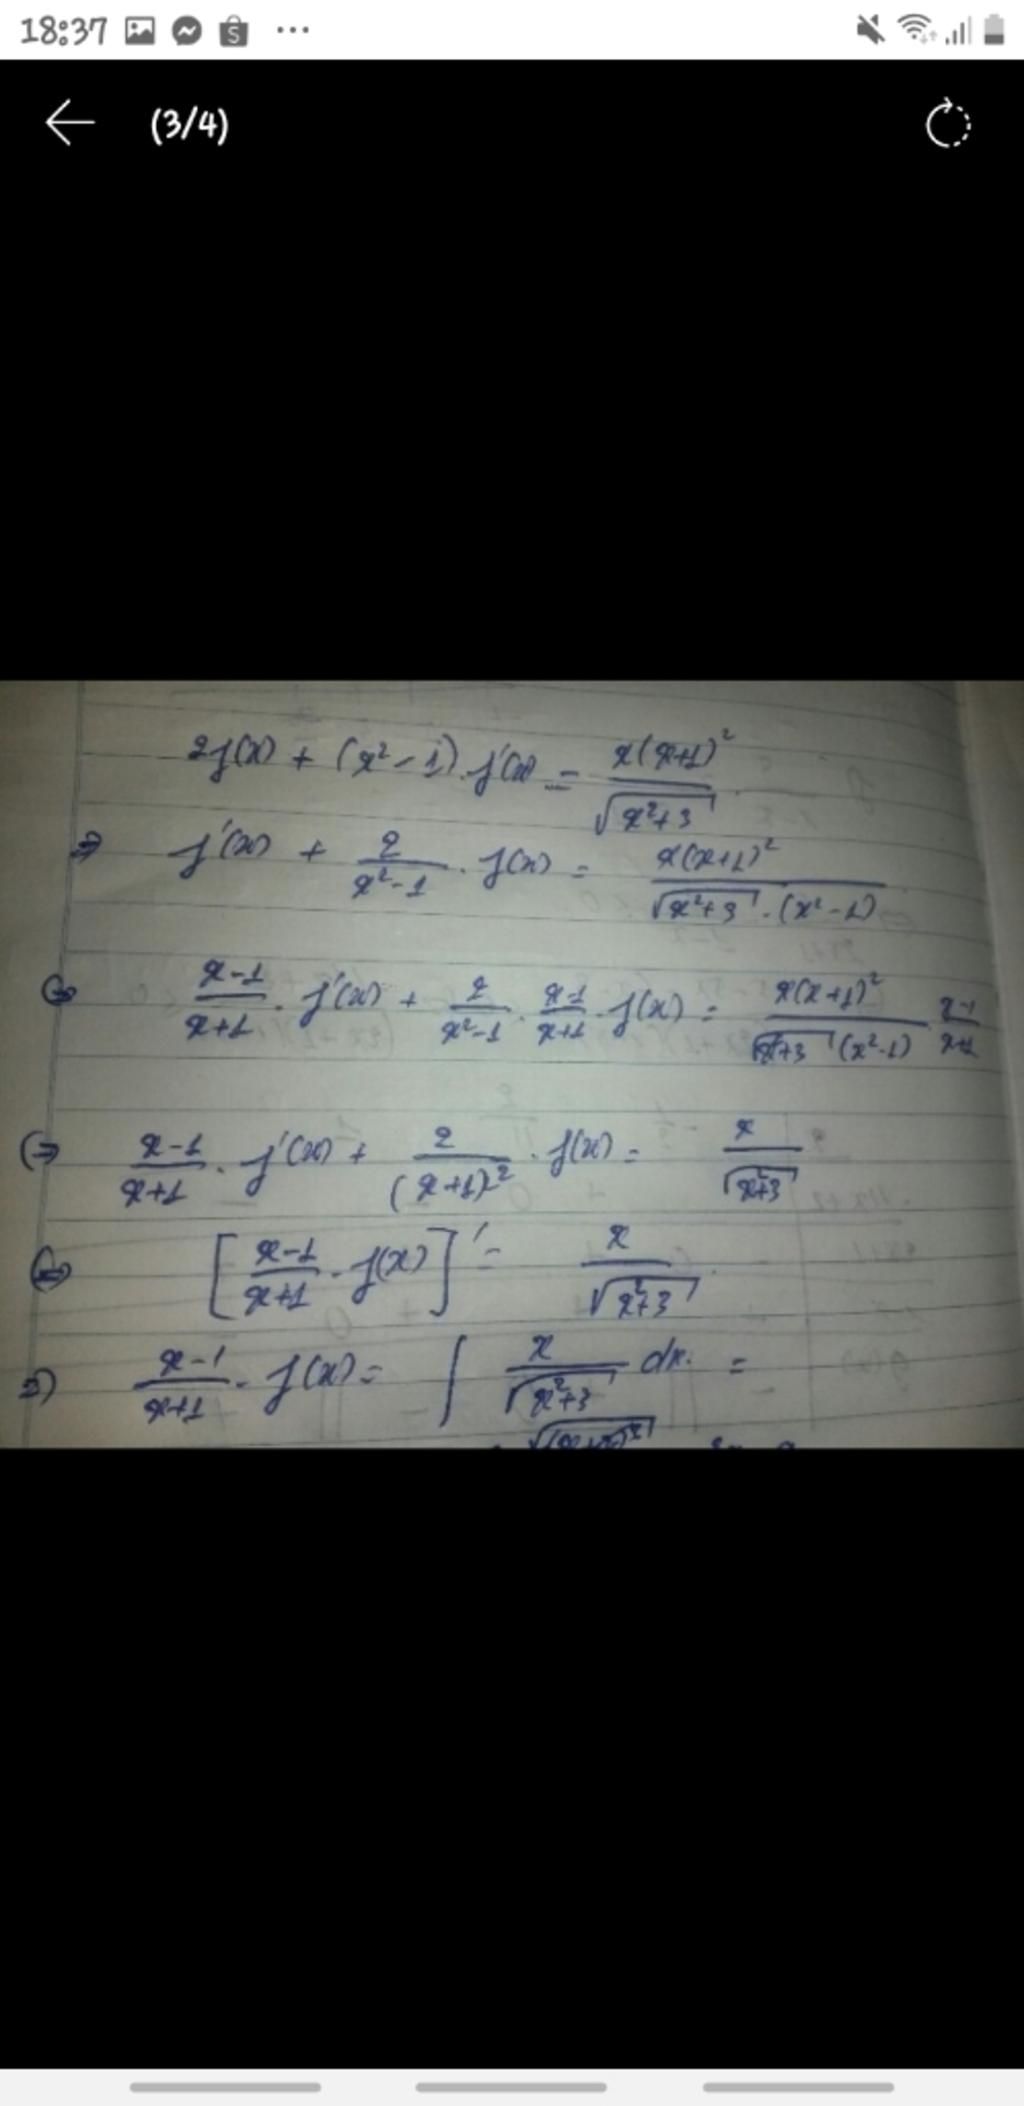 18:37
(3/4)
2f(x) + (x² - 1).f'(x) = x(x+1)² / √(x²+3)
⇒ f'(x) + 2/(x²-1) . f(x) = x(x+1)² / (√(x²+3) . (x²-1))
⇔ (x-1)/(x+1) . f'(x) + 2/(x²-1) . (x-1)/(x+1) . f(x) = x(x+1)² / (√(x²+3) (x²-1)) . (x-1)/(x+1)
⇔ (x-1)/(x+1) . f'(x) + 2/(x+1)² . f(x) = x / √(x²+3)
⇔ [(x-1)/(x+1) . f(x)]' = x / √(x²+3) .
⇒ (x-1)/(x+1) . f(x) = ∫ x / √(x²+3) dx. =